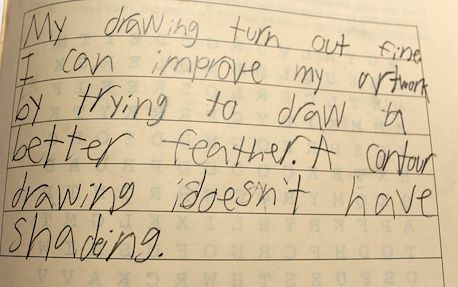 My drawing turn out fine
I can improve my artwork
by trying to draw a
better feather. A contour
drawing doesn't have
shading.